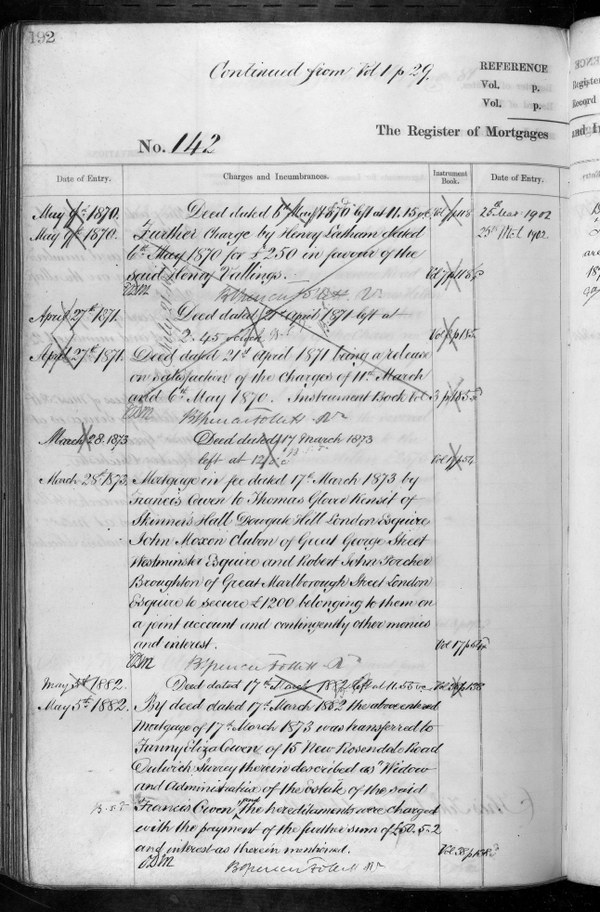 192
Continued from Vol 1 p 29.
REFERENCE
Vol. p.
Vol. p.
No. 142
The Register of Mortgages
Date of Entry.
Charges and Incumbrances.
Instrument Book.
Date of Entry.
May 9th 1870. Deed dated 6th May 1870 left at 11.15 25th 1902
May 9th 1870. Further Charge by Henry Latham dated 25th 1902
6th May 1870 for £250 in favour of the
said Henry Vallings.
BSpencer Follett R
April 27th 1871. Deed dated 21st April 1871 left at
2.45
April 27th 1871. Deed dated 21st April 1871 being a release
on satisfaction of the Charges of 11th March
and 6th May 1870. Instrument Book Vol 3 p 185
BSpencer Follett R
March 28 1873 Deed dated 17 March 1873
left at 12 Vol 17 p 54
March 28th 1873. Mortgage in fee dated 17th March 1873 by
Francis Owen to Thomas Glover Kensit of
Skinners Hall Dowgate Hill London Esquire
John Moxon Clabon of Great George Street
Westminster Esquire and Robert John Porcher
Broughton of Great Marlborough Street London
Esquire to secure £1200 belonging to them on
a joint account and contingently other monies
and interest. Vol 17 p 54
BSpencer Follett R
May 5th 1882. Deed dated 17th March 1882 left at 11.55 Vol 38 p 158
May 5th 1882. By deed dated 17th March 1882 the above entered
Mortgage of 17th March 1873 was transferred to
Fanny Eliza Owen of 15 New Rosendale Road
Dulwich Surrey therein described as "Widow
and Administratrix of the Estate of the said
Francis Owen" and the hereditaments were charged
with the payment of the further sum of £50.5.2
and interest as therein mentioned. Vol 38 p 158
BSpencer Follett R